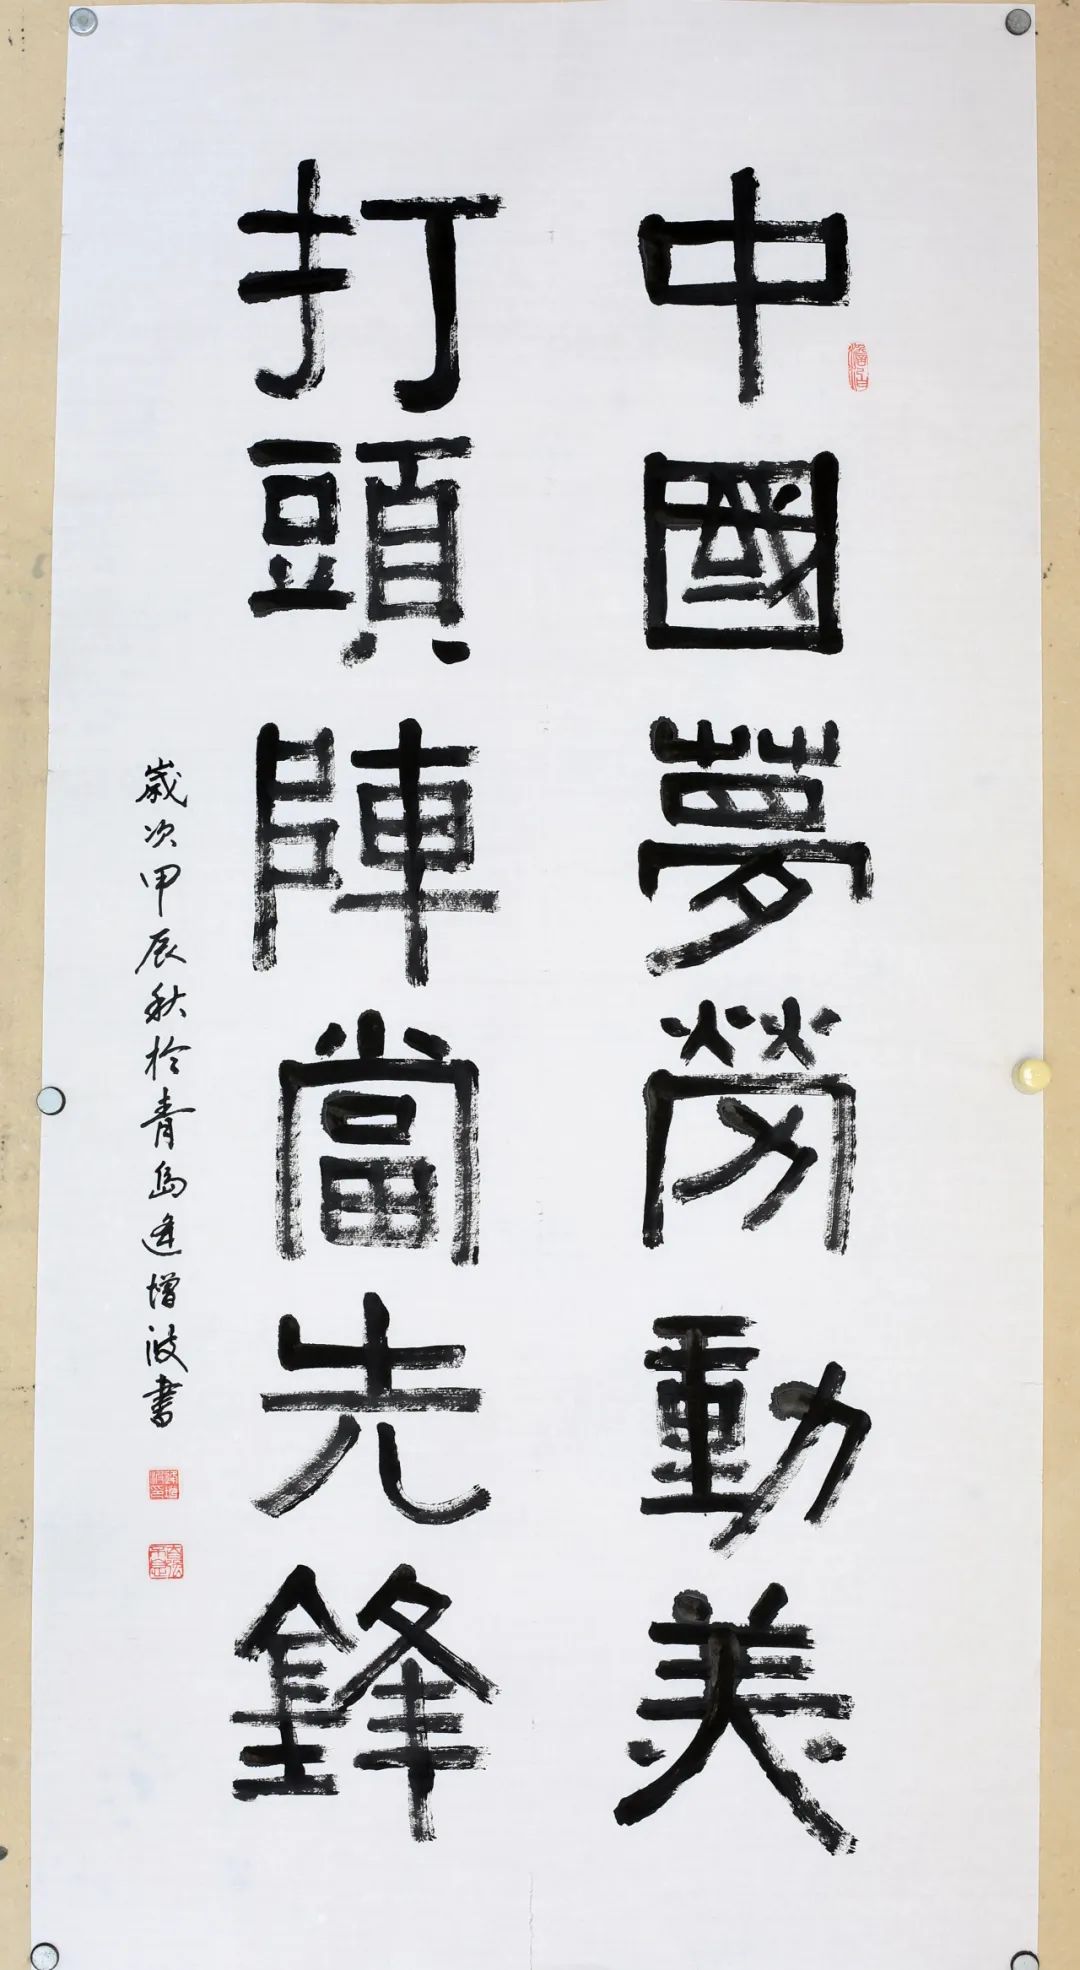 中國夢勞動美
打頭陣當先鋒
歲次甲辰秋於青島逄增波書